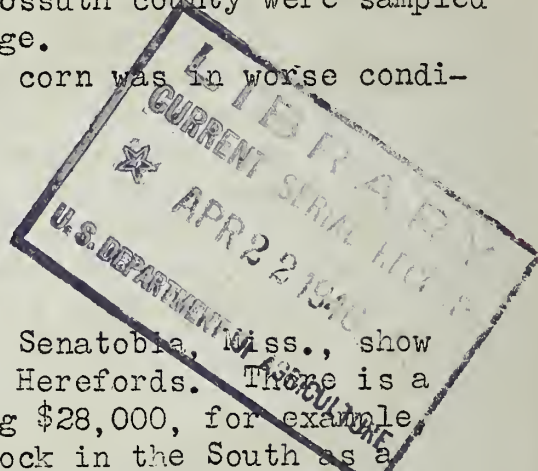 ossuth county were sampled
ge.
corn was in worse condi-
LIBRARY
CURRENT SERIAL RECORD
☆ APR 22 1946
U.S. DEPARTMENT OF AGRICULTURE
Senatobia, Miss., show
Herefords. There is a
g $28,000, for example,
ock in the South as a